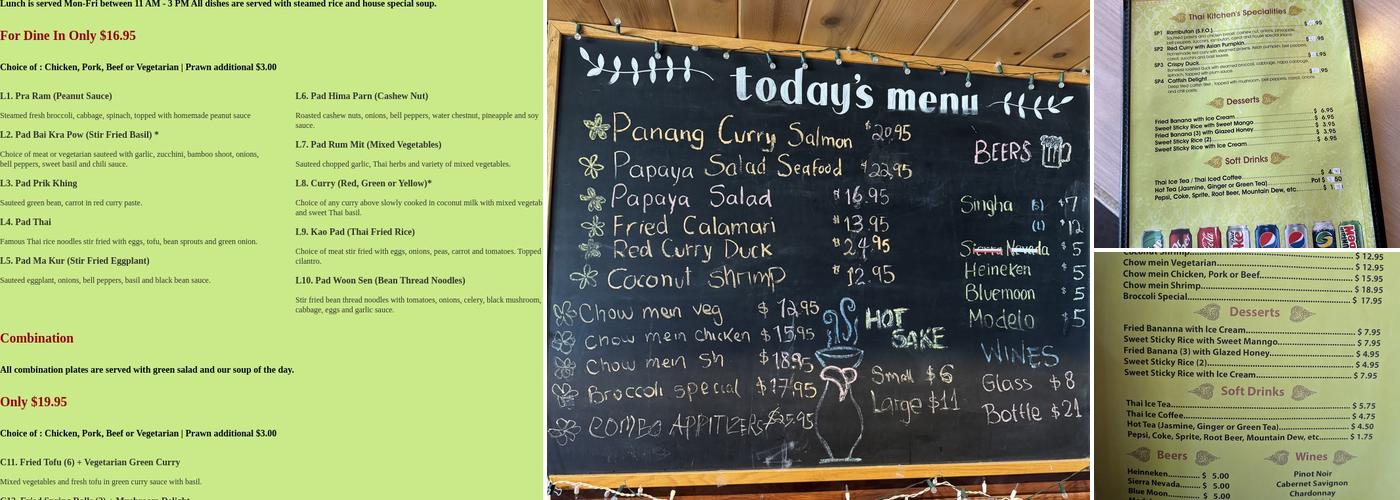 Lunch is served Mon-Fri between 11 AM - 3 PM All dishes are served with steamed rice and house special soup.
For Dine In Only $16.95
Choice of : Chicken, Pork, Beef or Vegetarian | Prawn additional $3.00
L1. Pra Ram (Peanut Sauce)
Steamed fresh broccoli, cabbage, spinach, topped with homemade peanut sauce
L2. Pad Bai Kra Pow (Stir Fried Basil) *
Choice of meat or vegetarian sauteed with garlic, zucchini, bamboo shoot, onions,
bell peppers, sweet basil and chili sauce.
L3. Pad Prik Khing
Sauteed green bean, carrot in red curry paste.
L4. Pad Thai
Famous Thai rice noodles stir fried with eggs, tofu, bean sprouts and green onion.
L5. Pad Ma Kur (Stir Fried Eggplant)
Sauteed eggplant, onions, bell peppers, basil and black bean sauce.
L6. Pad Hima Parn (Cashew Nut)
Roasted cashew nuts, onions, bell peppers, water chestnut, pineapple and soy
sauce.
L7. Pad Rum Mit (Mixed Vegetables)
Sauteed chopped garlic, Thai herbs and variety of mixed vegetables.
L8. Curry (Red, Green or Yellow)*
Choice of any curry above slowly cooked in coconut milk with mixed vegetab
and sweet Thai basil.
L9. Kao Pad (Thai Fried Rice)
Choice of meat stir fried with eggs, onions, peas, carrot and tomatoes. Topped
cilantro.
L10. Pad Woon Sen (Bean Thread Noodles)
Stir fried bean thread noodles with tomatoes, onions, celery, black mushroom,
cabbage, eggs and garlic sauce.
Combination
All combination plates are served with green salad and our soup of the day.
Only $19.95
Choice of : Chicken, Pork, Beef or Vegetarian | Prawn additional $3.00
C11. Fried Tofu (6) + Vegetarian Green Curry
Mixed vegetables and fresh tofu in green curry sauce with basil.
today's menu
Panang Curry Salmon $20.95
Papaya Salad Seafood $22.95
Papaya Salad $16.95
Fried Calamari $13.95
Red Curry Duck $24.95
Coconut Shrimp $12.95
Chow men veg $12.95
Chow mein chicken $15.95
Chow mein Sh $18.95
Broccoli special $17.95
COMBO APPITIZERS $25.95
BEERS
Singha (S) $7
(L) $12
Sierra Nevada $5
Heineken $5
Bluemoon $5
Modelo $5
HOT
SAKE
Small $6
Large $11
WINES
Glass $8
Bottle $21
Thai Kitchen's Specialities
SP1 Rambutan (S.F.O.)
SP2 Red Curry with Asian Pumpkin
SP3 Crispy Duck
SP4 Catfish Delight
Desserts
Fried Banana with Ice Cream $ 6.95
Sweet Sticky Rice with Sweet Mango $ 6.95
Fried Banana (3) with Glazed Honey $ 3.95
Sweet Sticky Rice (2) $ 3.95
Sweet Sticky Rice with Ice Cream $ 6.95
Soft Drinks
Thai Ice Tea / Thai Iced Coffee
Hot Tea (Jasmine, Ginger or Green Tea) Pot
Pepsi, Coke, Sprite, Root Beer, Mountain Dew, etc
Coconut Shrimp $ 12.95
Chow mein Vegetarian $ 12.95
Chow mein Chicken, Pork or Beef $ 15.95
Chow mein Shrimp $ 18.95
Broccoli Special $ 17.95
Desserts
Fried Bananna with Ice Cream $ 7.95
Sweet Sticky Rice with Sweet Manngo $ 7.95
Fried Banana (3) with Glazed Honey $ 4.95
Sweet Sticky Rice (2) $ 4.95
Sweet Sticky Rice with Ice Cream $ 7.95
Soft Drinks
Thai Ice Tea $ 5.75
Thai Ice Coffee $ 4.75
Hot Tea (Jasmine, Ginger or Green Tea) $ 4.50
Pepsi, Coke, Sprite, Root Beer, Mountain Dew, etc $ 1.75
Beers
Heinneken $ 5.00
Sierra Nevada $ 5.00
Blue Moon $ 5.00
Wines
Pinot Noir
Cabernet Savignon
Chardonnay